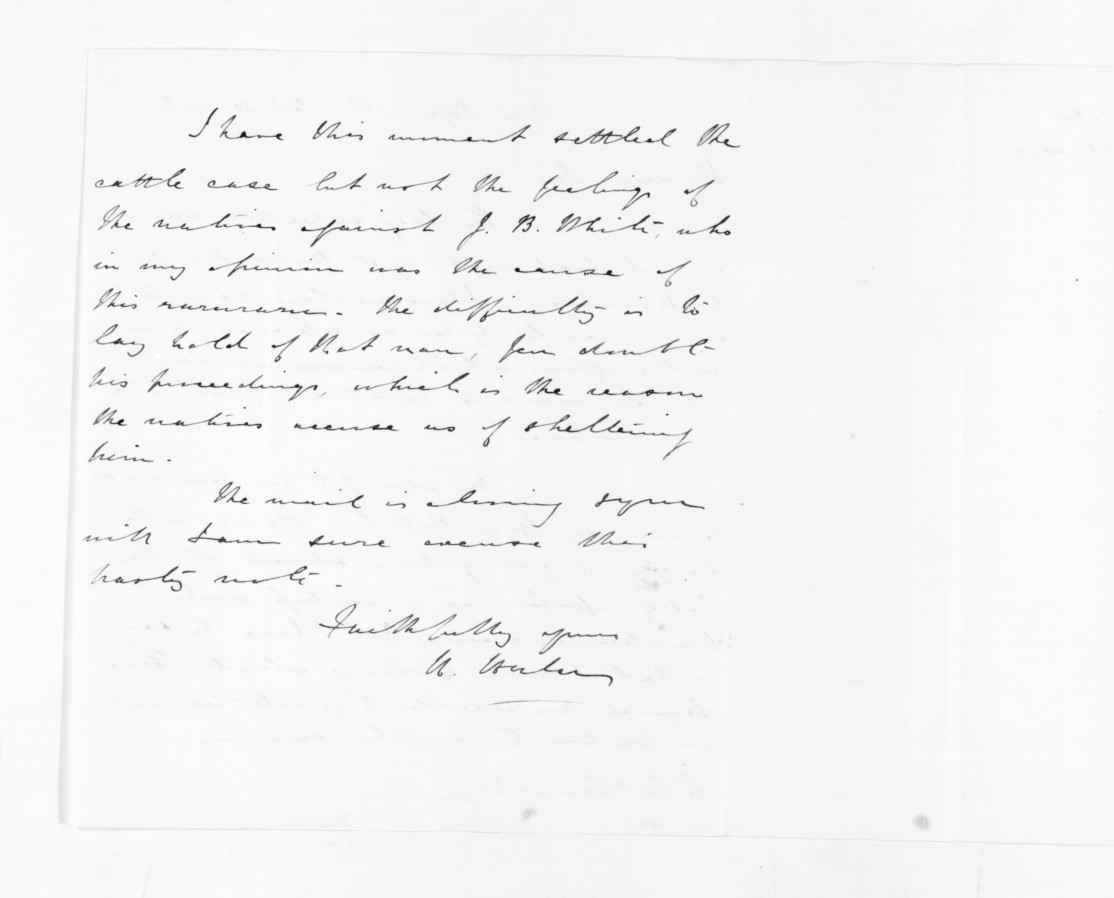 I have this moment settled the
cattle case but not the feelings of
the natives against J. B. White, who
in my opinion was the cause of
this raruraru. The difficulty is to
lay hold of that man, for doubt
his proceedings, which is the reason
the natives accuse us of sheltering
him.
The mail is closing & you
will I am sure excuse this
hasty note.
Faithfully yours